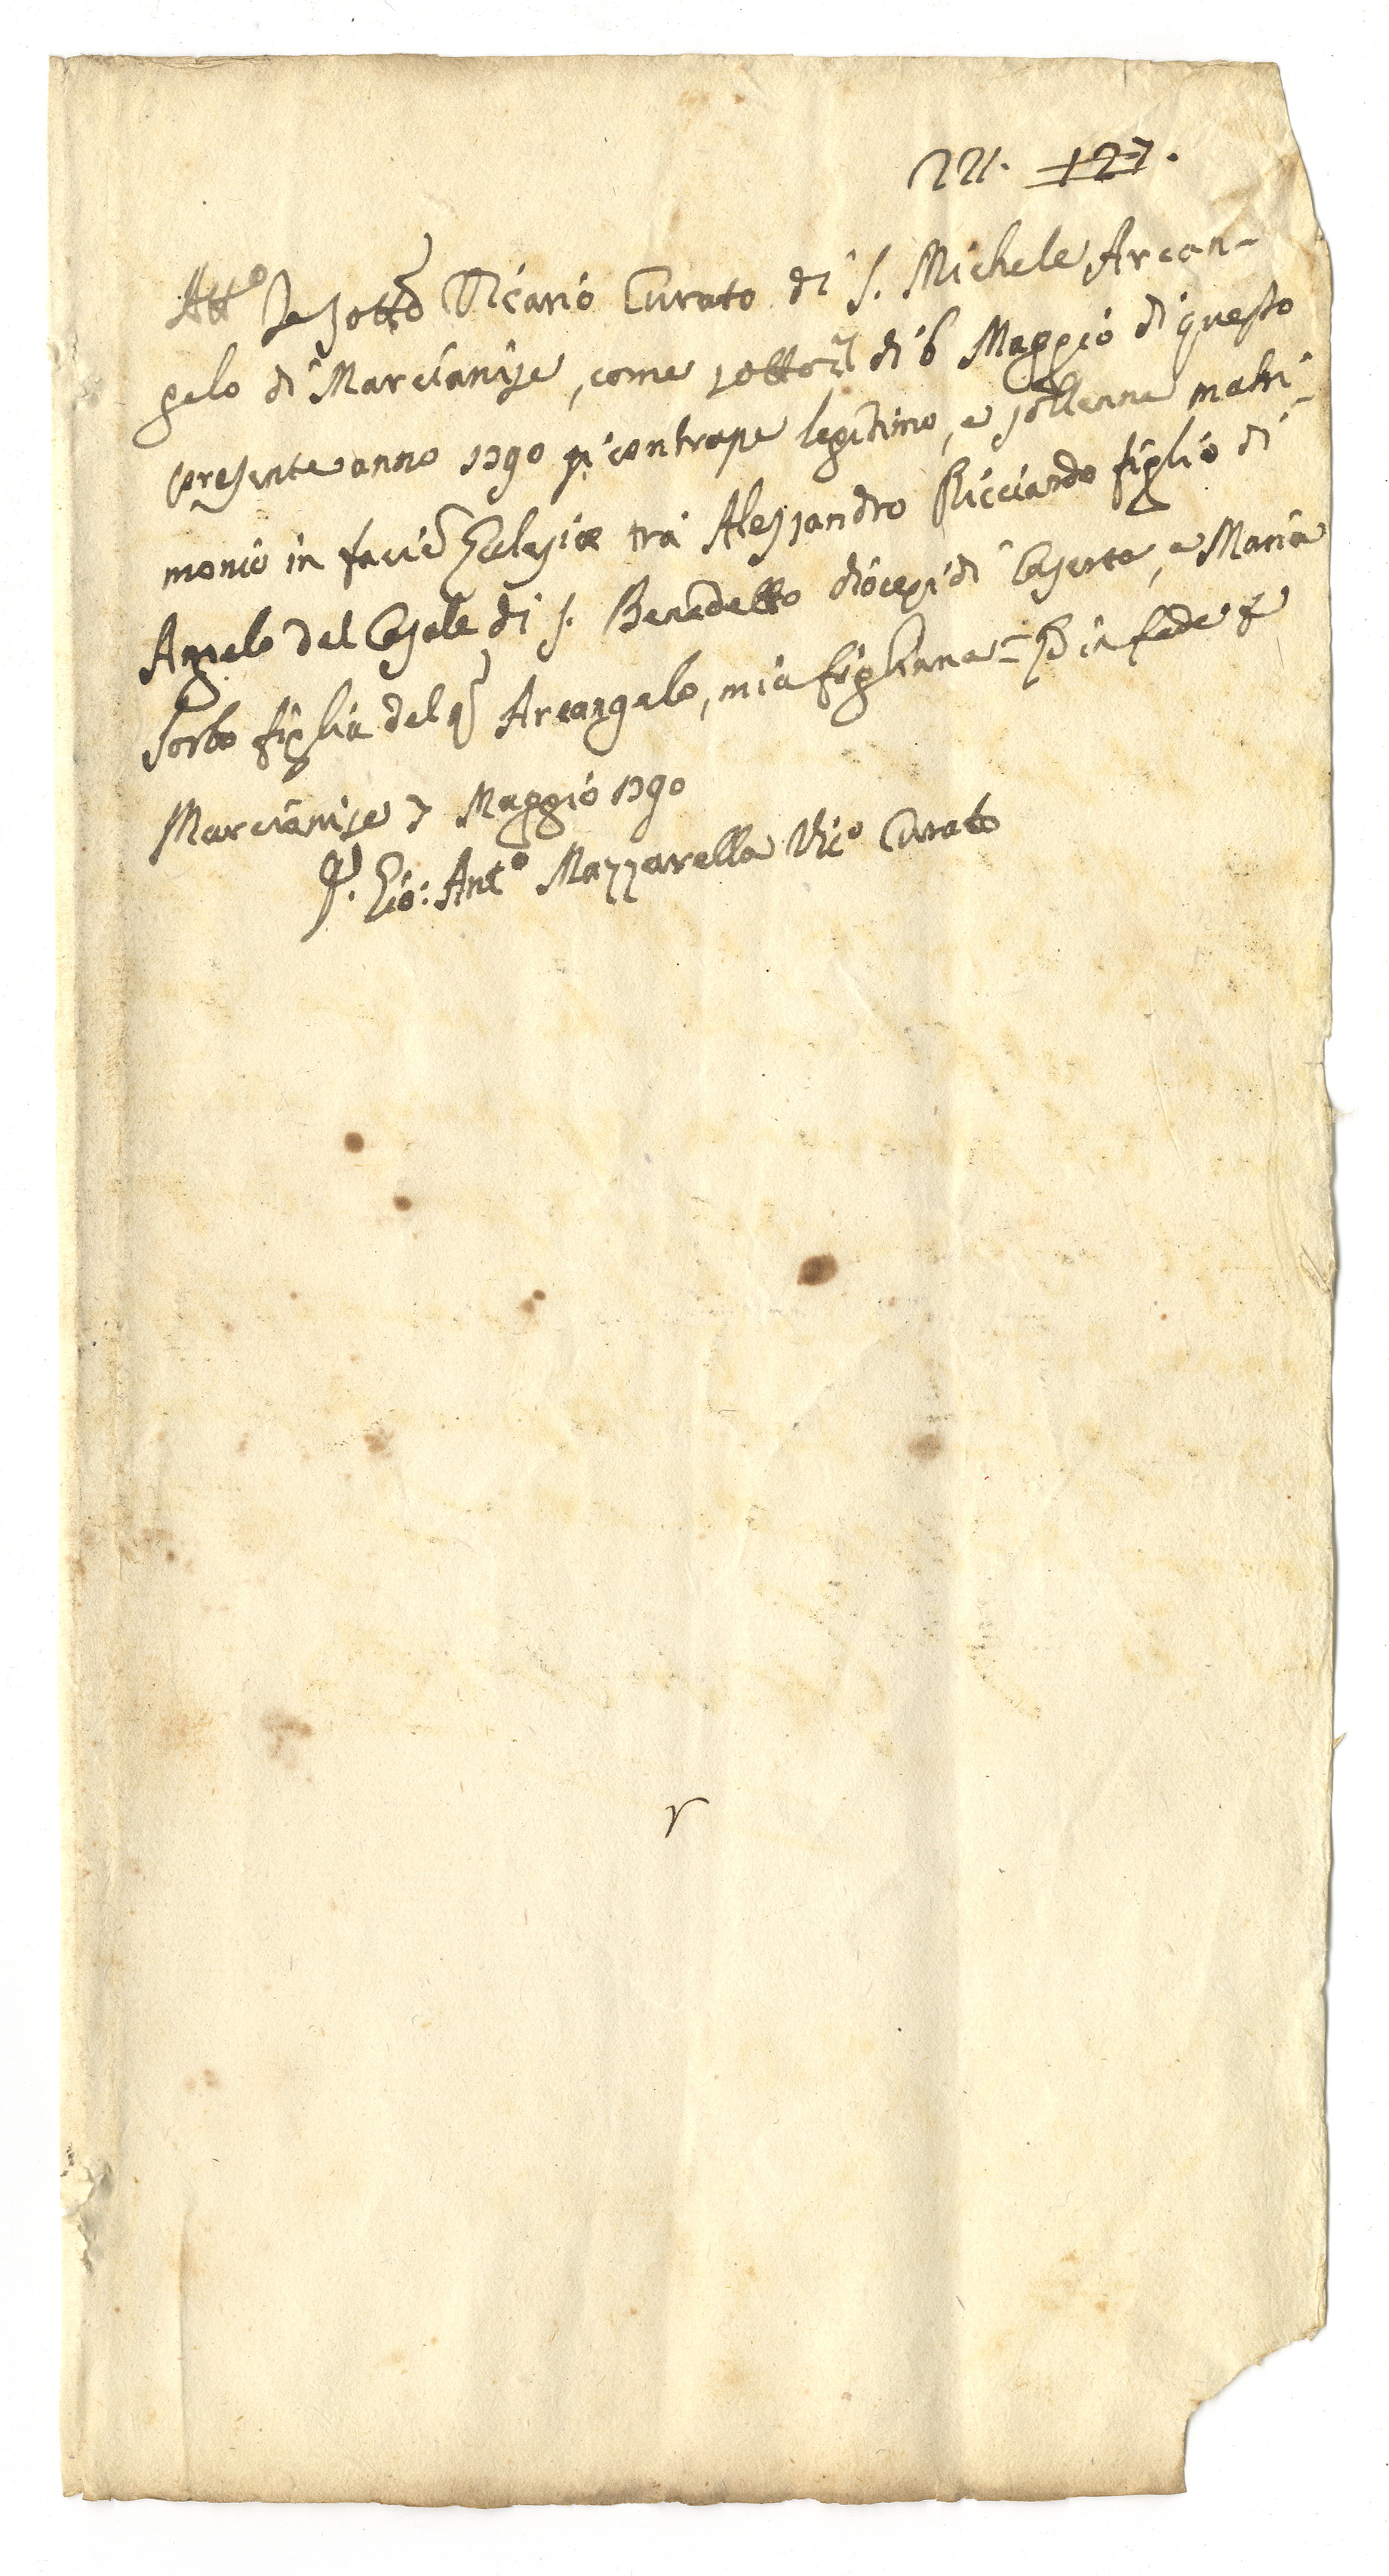 221. 127.
Att.o Io sotto Vicario Curato di S. Michele Arcan-
gelo di Marcianise, come sotto li di 6 Maggio di questo
presente anno 1790 si contrasse legitimo, e sollenne matri-
monio in facie Ecclesiæ trà Alessandro Ricciardo figlio di
Angelo del Casale di S. Benedetto diocesi di Caserta, e Maria
Sorbo figlia del q. Arcangelo, mia figliana = in fede &
Marcianise 7 Maggio 1790
P. Gio: Ant.o Mazzarella Vic.o Curato